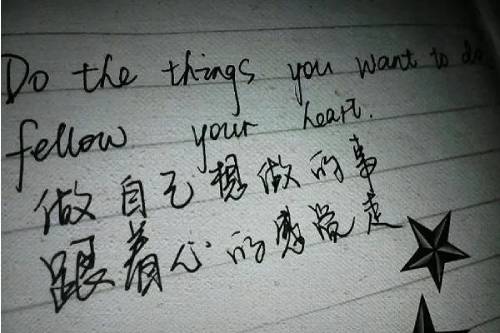 Do the things you want to do
fellow your heart.
做自己想做的事
跟着心的感觉走